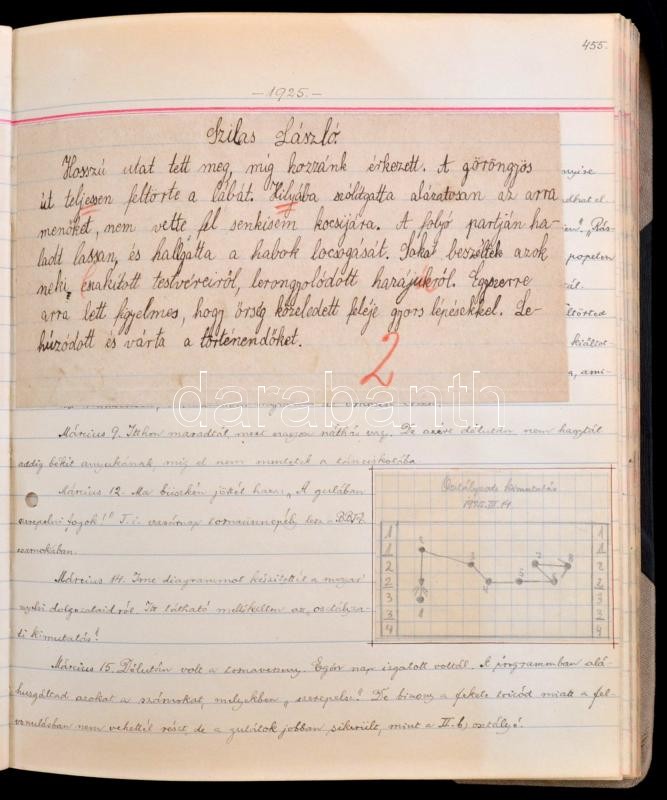 455.
-1925.-
Szilas László
Hosszú utat tett meg, míg hozzánk érkezett. A göröngyös
út teljessen feltörte a lábát. Hilyába szólítgatta alázatosan az arra
menőket, nem vette fel senkisem kocsijára. A folyó partján ha-
ladt lassan, és hallgatta a habok locsogását. Sokat beszéltek azok
neki, elszakított testvéreiről, lerongyolódott hazájukról. Egyszerre
arra lett figyelmes, hogy őrség közeledett feléje gyors lépésekkel. Le-
húzódott és várta a történendőket.
2
Március 9. Itthon maradtál, mert nagyon náthás vagy. De azért délután nem hagytál
addig békét anyukának, míg el nem mentetek a tánciskolába.
Március 12. Ma büszkén jöttél haza: „A gúlában
szerepelni fogok!" T.i. vasárnap tornaünnepély lesz a BBTE
csarnokában.
Március 14. Íme diagrammot készítettél a magyar
nyelvi dolgozataidról. Itt látható mellékelten az „osztályza-
ti kimutatás".
Osztályzati kimutatás
1925. III. 14
1 1
1 1
2 2
2 2
3 3
3 3
4 4
Március 15. Délután volt a tornaverseny. Egész nap izgatott voltál. A programmban alá-
huzgáltad azokat a számokat, melyekben „szerepelsz". De bizony a fekete trikód miatt a fel-
vonulásban nem vehettél részt, de a gúlátok jobban sikerült, mint a II.b) osztályé.
darabanth